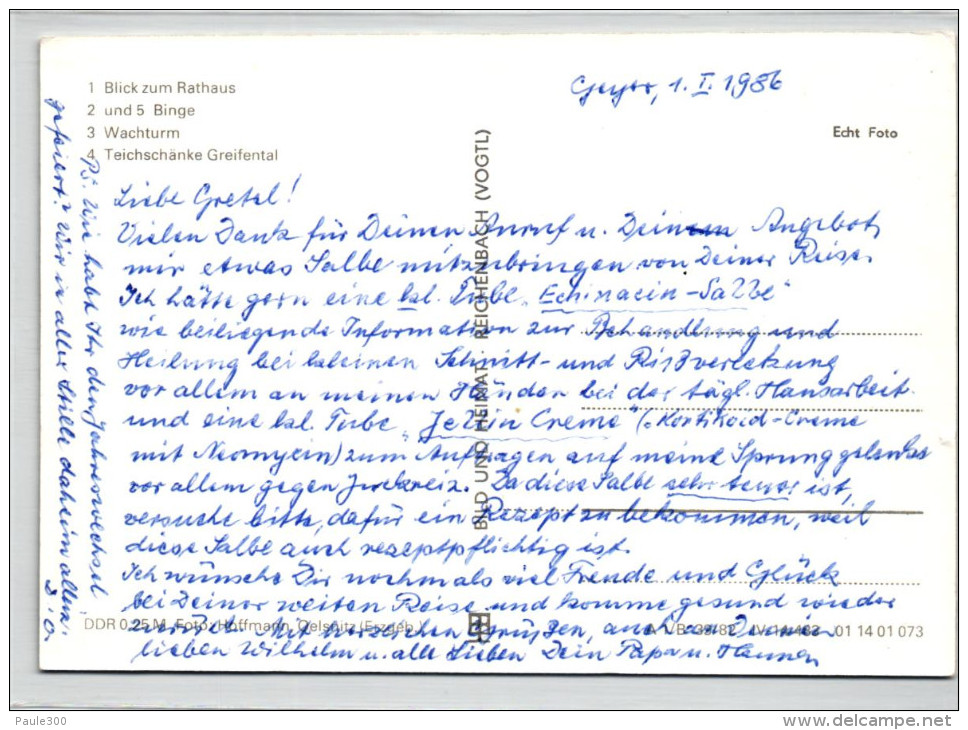 1 Blick zum Rathaus
2 und 5 Binge
3 Wachturm
4 Teichschänke Greifental
Geyer, 1. I. 1986
Echt Foto
BILD UND HEIMAT REICHENBACH (VOGTL)
Liebe Gretel!
Vielen Dank für Deinen Anruf u. Dein Angebot,
mir etwas Salbe mitzubringen von Deiner Reise.
Ich hätte gern eine kl. Tube „Echinacin-Salbe"
wie beiliegende Information zur Behandlung und
Heilung bei kleinen Schnitt- und Rißverletzung
vor allem an meinen Händen bei der tägl. Hausarbeit.
und eine kl. Tube „Jellin Creme" (Kortikoid-Creme
mit Neomycin) zum Auftragen auf meine Sprunggelenke
vor allem gegen Juckreiz. Da diese Salbe sehr teuer ist,
versuche bitte, dafür ein Rezept zu bekommen, weil
diese Salbe auch rezeptpflichtig ist.
Ich wünsche Dir nochmals viel Freude und Glück
bei Deiner weiten Reise und komme gesund wieder
zurück. Mit herzlichen Grüßen, auch an Deinen
lieben Wilhelm u. alle Lieben Dein Papa u. Hannen
PS. Wie habt Ihr den Jahreswechsel
gefeiert? Wir in aller Stille daheim allein.
DDR 0,25 M Foto: Hoffmann, Oelsnitz (Erzgeb.)
01 14 01 073
Paule300
www.delcampe.net